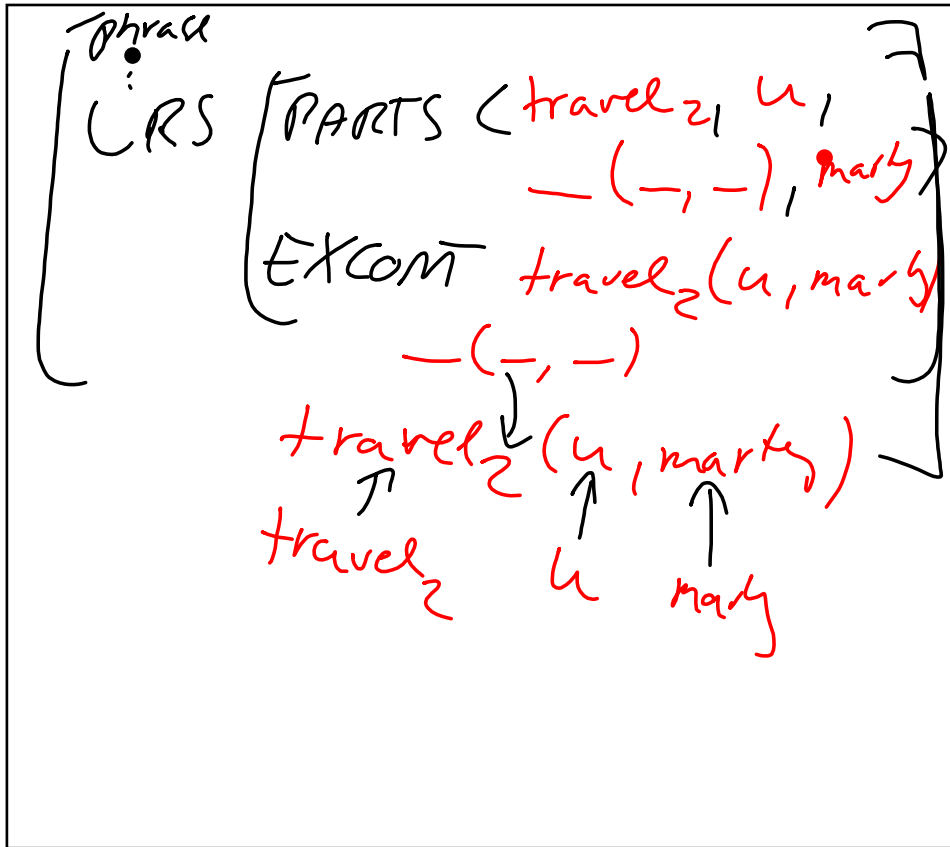 phrase
:
LRS [PARTS <travel₂, u,
__(_,_), marty>
EXCONT travel₂(u, marty
__(_,_)
travel₂(u, marty)
travel₂ u marty